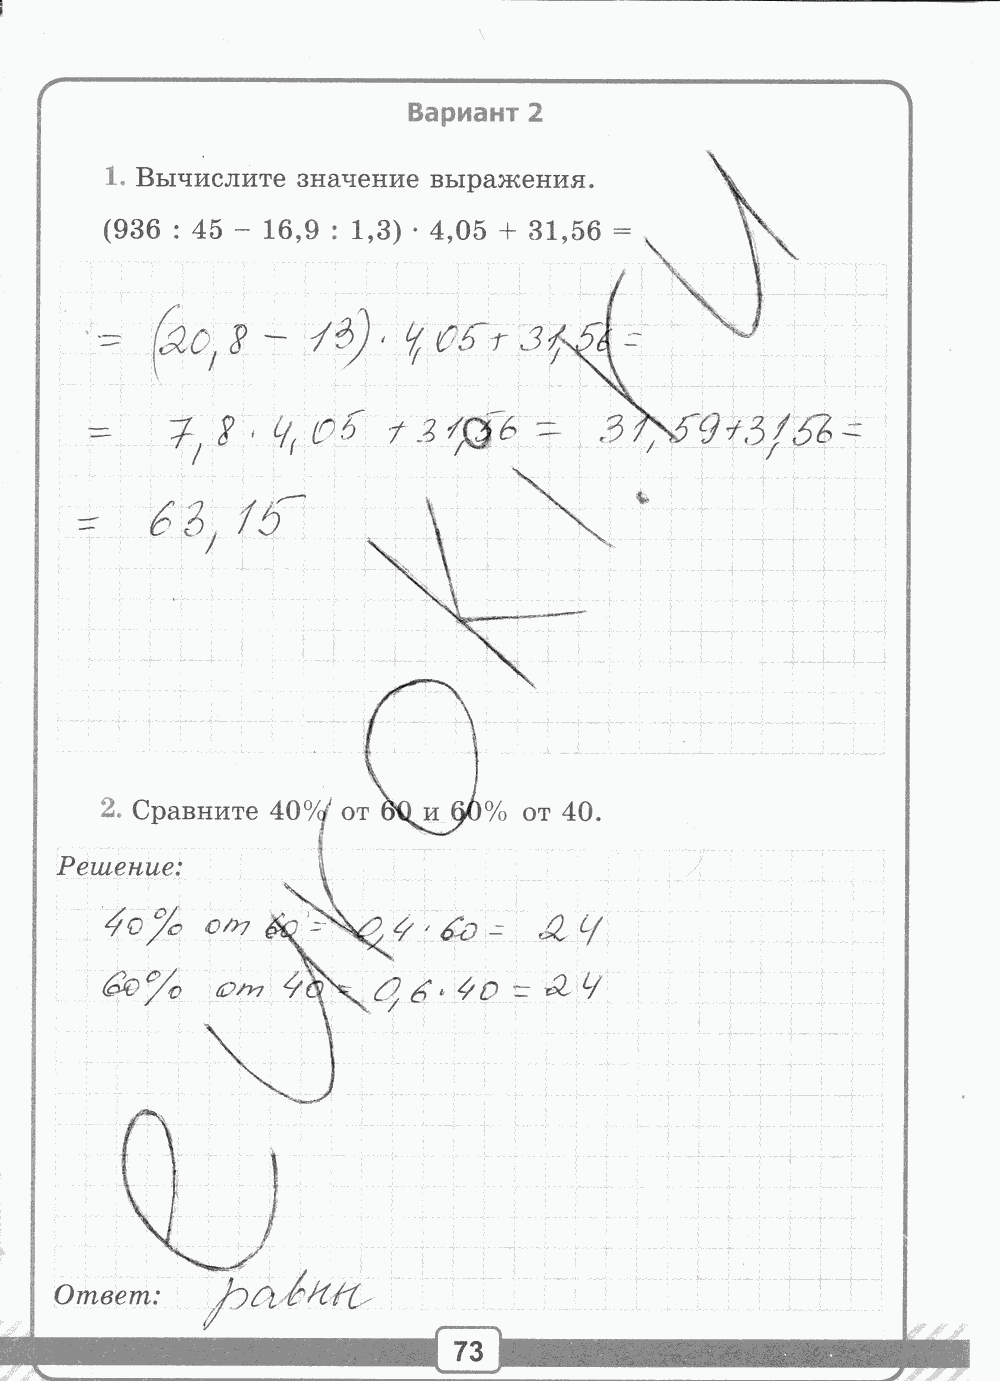 Вариант 2
1. Вычислите значение выражения.
(936 : 45 − 16,9 : 1,3) · 4,05 + 31,56 =
= (20,8 − 13) · 4,05 + 31,56 =
= 7,8 · 4,05 + 31,56 = 31,59 + 31,56 =
= 63,15
2. Сравните 40% от 60 и 60% от 40.
Решение:
40% от 60 = 0,4 · 60 = 24
60% от 40 = 0,6 · 40 = 24
Ответ: равны
73
euroki.ru